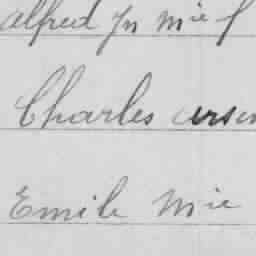 alfred Jn Mie f
Charles arsen
Emile Mie